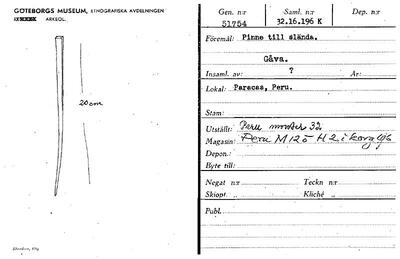 GÖTEBORGS MUSEUM, ETNOGRAFISKA AVDELNINGEN
ARKEOL.
20cm
Gen. n:r
51754
Saml. n:r
32.16.196 K
Dep. n:r
Föremål: Pinne till slända.
Gåva.
Insaml. av: ? År:
Lokal: Paracas, Peru.
Stam:
Utställt: Peru monter 32
Magasin: Peru M 125 H 2 i korg
Depon.:
Byte till:
Negat n:r Teckn n:r
Skiopt. „ Kliché „
Publ.